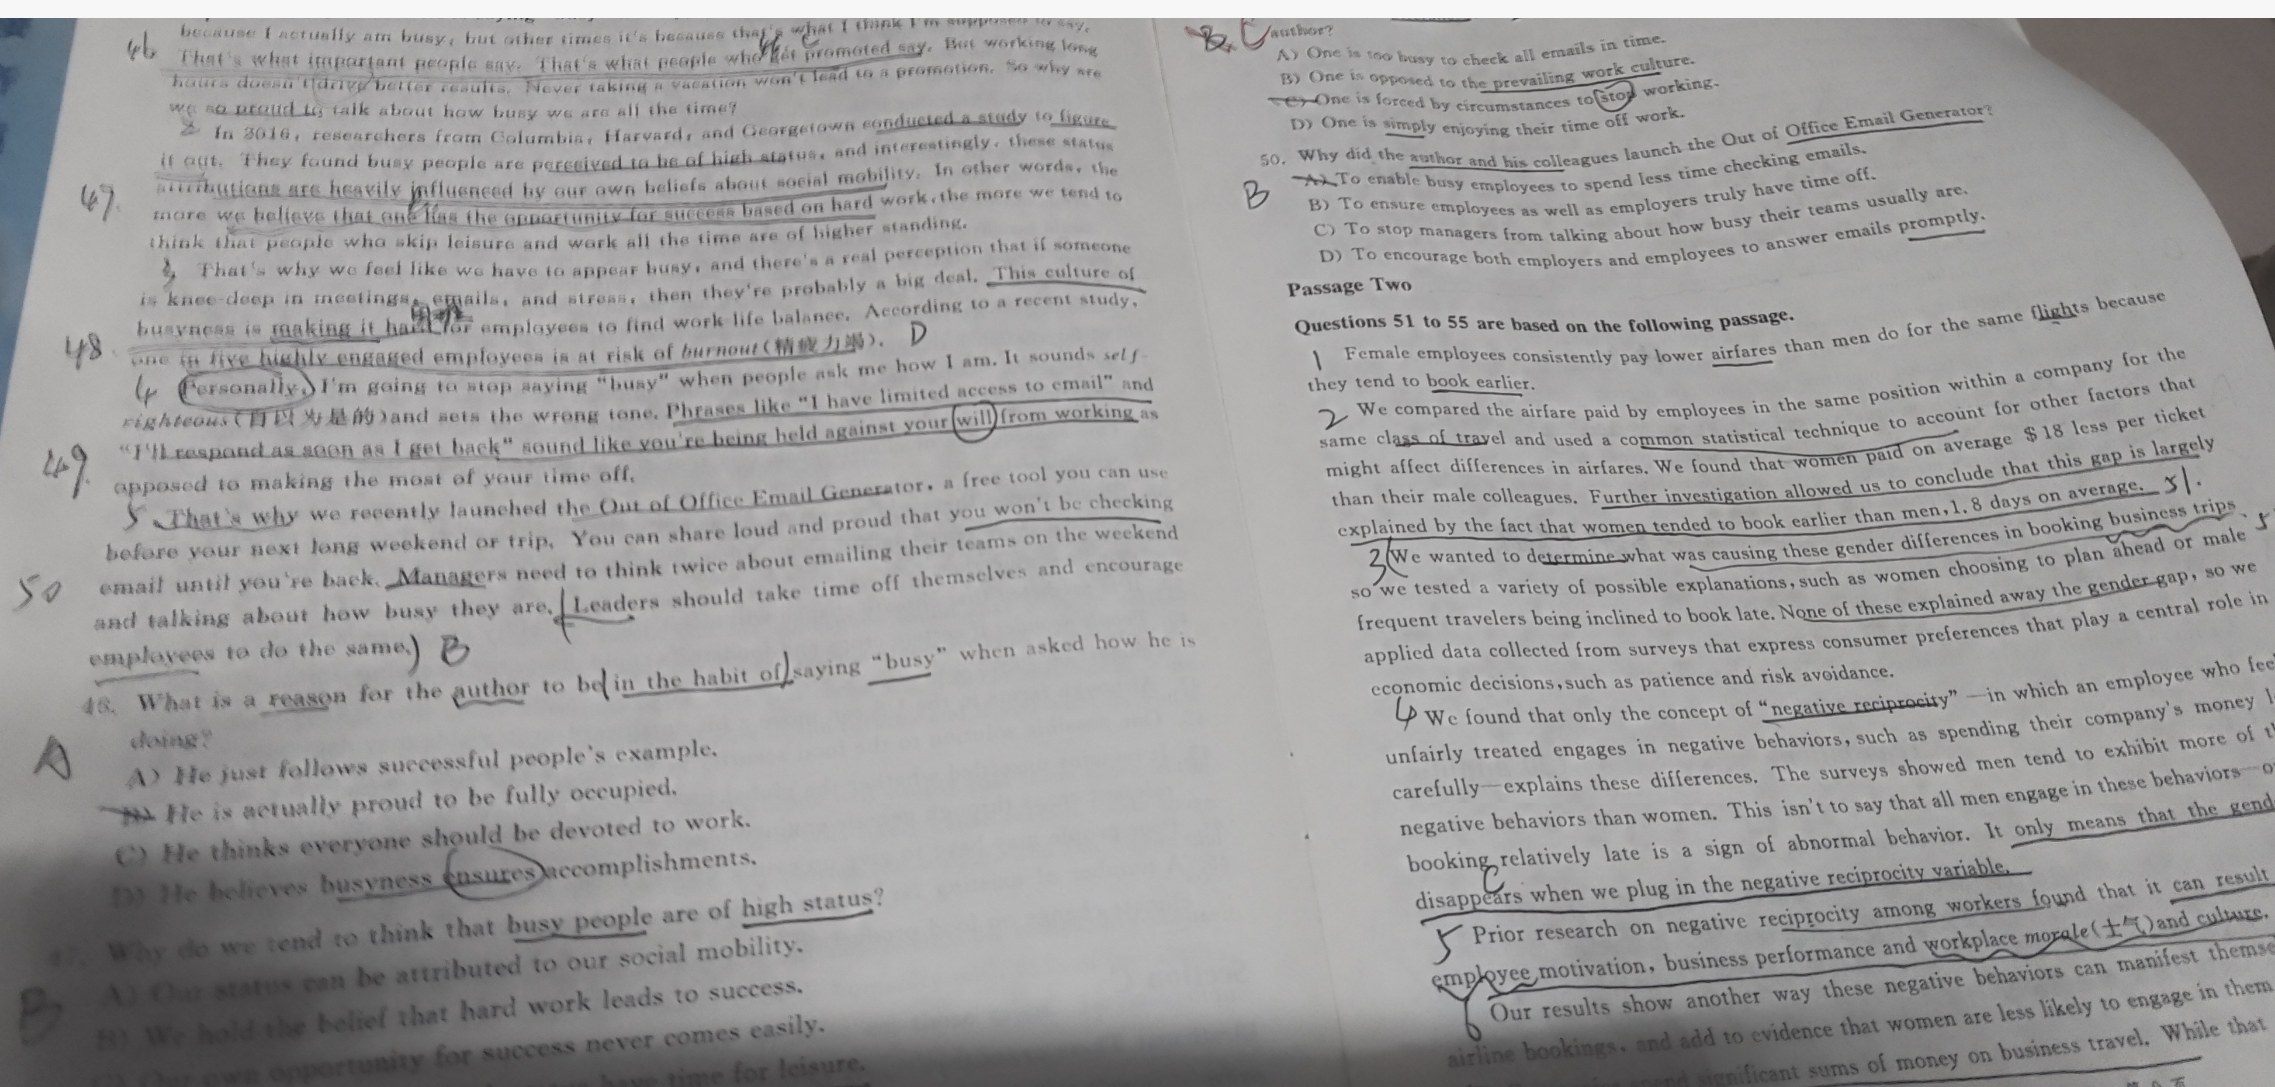 because I actually am busy, but other times it's because that's what I think I'm supposed to say.
46
That's what important people say. That's what people who get promoted say. But working long
hours doesn't drive better results. Never taking a vacation won't lead to a promotion. So why are
we so proud to talk about how busy we are all the time?
2 In 2016, researchers from Columbia, Harvard, and Georgetown conducted a study to figure
it out. They found busy people are perceived to be of high status, and interestingly, these status
47.
attributions are heavily influenced by our own beliefs about social mobility. In other words, the
more we believe that one has the opportunity for success based on hard work, the more we tend to
think that people who skip leisure and work all the time are of higher standing.
3 That's why we feel like we have to appear busy, and there's a real perception that if someone
is knee-deep in meetings, emails, and stress, then they're probably a big deal. This culture of
busyness is making it hard for employees to find work-life balance. According to a recent study,
48
one in five highly engaged employees is at risk of burnout(精疲力竭). D
4 Personally, I'm going to stop saying "busy" when people ask me how I am. It sounds self-
righteous(自以为是的)and sets the wrong tone. Phrases like "I have limited access to email" and
49.
"I'll respond as soon as I get back" sound like you're being held against your will from working as
opposed to making the most of your time off.
5 That's why we recently launched the Out of Office Email Generator, a free tool you can use
before your next long weekend or trip. You can share loud and proud that you won't be checking
50
email until you're back. Managers need to think twice about emailing their teams on the weekend
and talking about how busy they are. Leaders should take time off themselves and encourage
employees to do the same. B
46. What is a reason for the author to be in the habit of saying "busy" when asked how he is
doing?
A
A) He just follows successful people's example.
B) He is actually proud to be fully occupied.
C) He thinks everyone should be devoted to work.
D) He believes busyness ensures accomplishments.
47. Why do we tend to think that busy people are of high status?
A) Our status can be attributed to our social mobility.
B
B) We hold the belief that hard work leads to success.
C) Our own opportunity for success never comes easily.
have time for leisure.
B. C author?
A) One is too busy to check all emails in time.
B) One is opposed to the prevailing work culture.
C) One is forced by circumstances to stop working.
D) One is simply enjoying their time off work.
50. Why did the author and his colleagues launch the Out of Office Email Generator?
B
A) To enable busy employees to spend less time checking emails.
B) To ensure employees as well as employers truly have time off.
C) To stop managers from talking about how busy their teams usually are.
D) To encourage both employers and employees to answer emails promptly.
Passage Two
Questions 51 to 55 are based on the following passage.
1 Female employees consistently pay lower airfares than men do for the same flights because
they tend to book earlier.
2 We compared the airfare paid by employees in the same position within a company for the
same class of travel and used a common statistical technique to account for other factors that
might affect differences in airfares. We found that women paid on average $18 less per ticket
than their male colleagues. Further investigation allowed us to conclude that this gap is largely
explained by the fact that women tended to book earlier than men, 1.8 days on average. 51.
3 We wanted to determine what was causing these gender differences in booking business trips,
so we tested a variety of possible explanations, such as women choosing to plan ahead or male
frequent travelers being inclined to book late. None of these explained away the gender gap, so we
applied data collected from surveys that express consumer preferences that play a central role in
economic decisions, such as patience and risk avoidance.
4 We found that only the concept of "negative reciprocity"—in which an employee who
unfairly treated engages in negative behaviors, such as spending their company's money
carefully—explains these differences. The surveys showed men tend to exhibit more of
negative behaviors than women. This isn't to say that all men engage in these behaviors
booking relatively late is a sign of abnormal behavior. It only means that the
disappears when we plug in the negative reciprocity variable.
5 Prior research on negative reciprocity among workers found that it can result
employee motivation, business performance and workplace morale(士气)and culture.
6 Our results show another way these negative behaviors can manifest
airline bookings, and add to evidence that women are less likely to engage in them
significant sums of money on business travel. While that